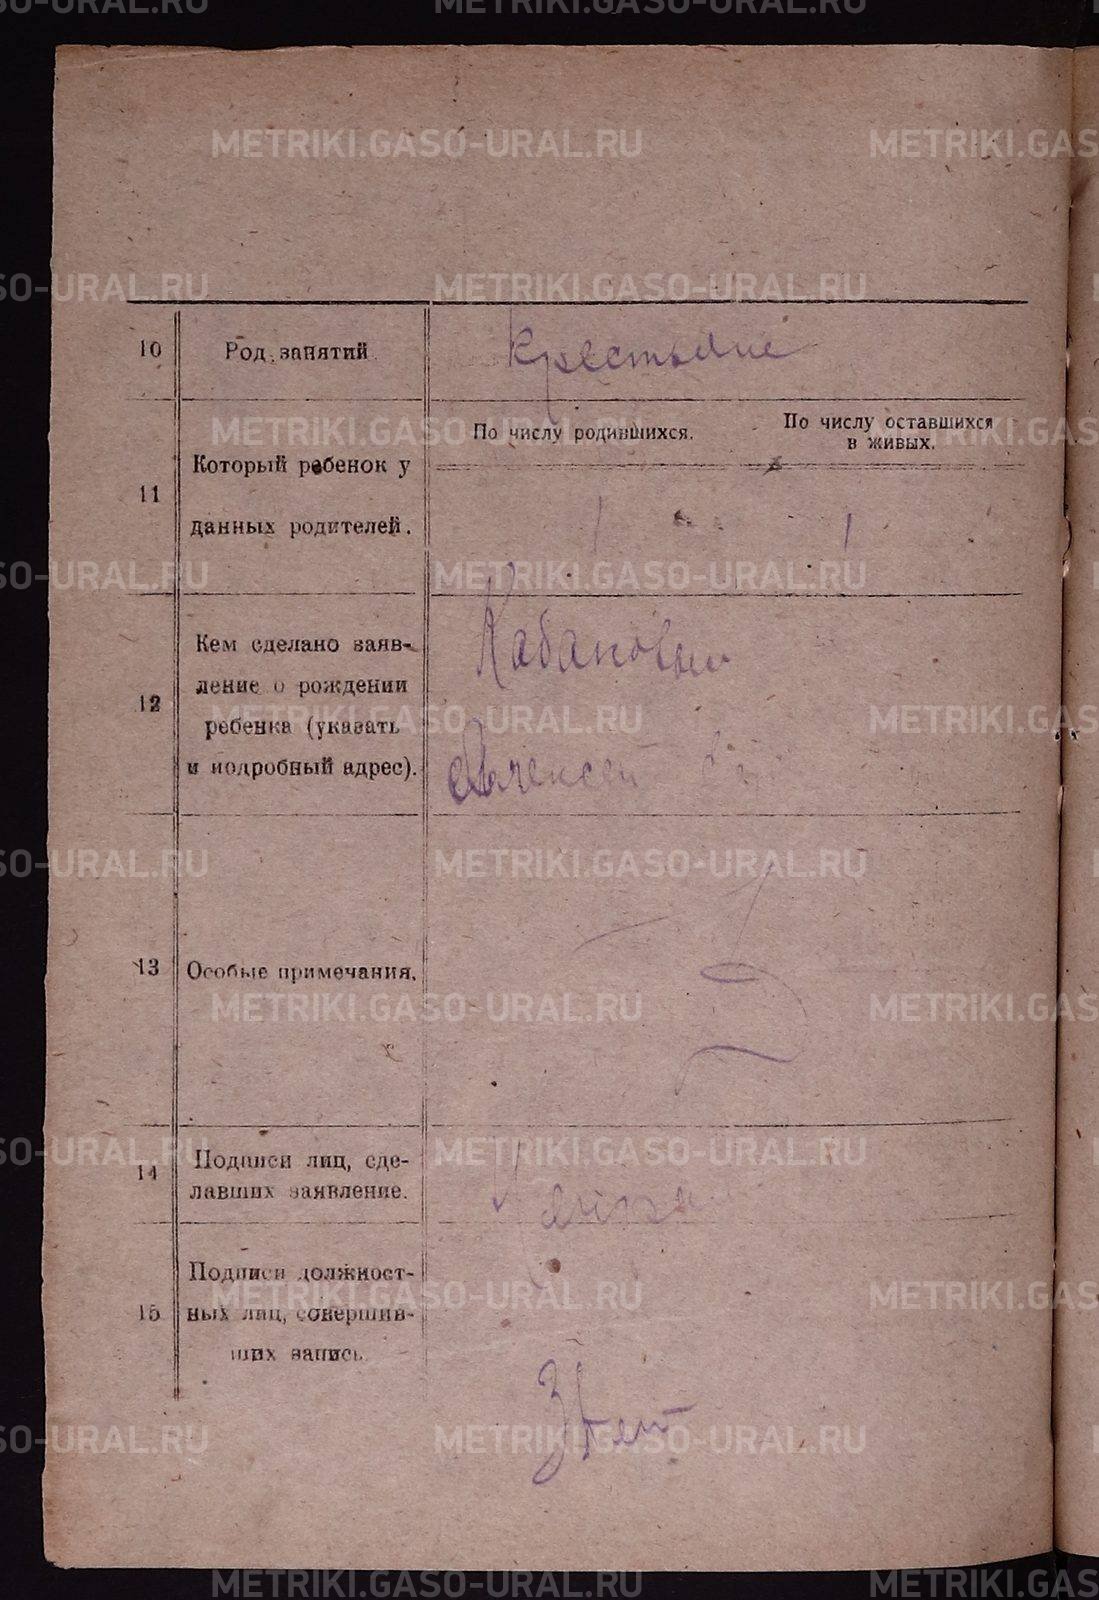 10 Род занятий. Крестьяне
11 Который ребенок у данных родителей.
По числу родившихся. По числу оставшихся
в живых.
1 1
12 Кем сделано заяв-
ление о рождении
ребенка (указать
и подробный адрес).
Кабановым
Алексей
13 Особые примечания.
14 Подписи лиц, сде-
лавших заявление.
15 Подписи должност-
ных лиц, совершив-
ших запись.
METRIKI.GASO-URAL.RU